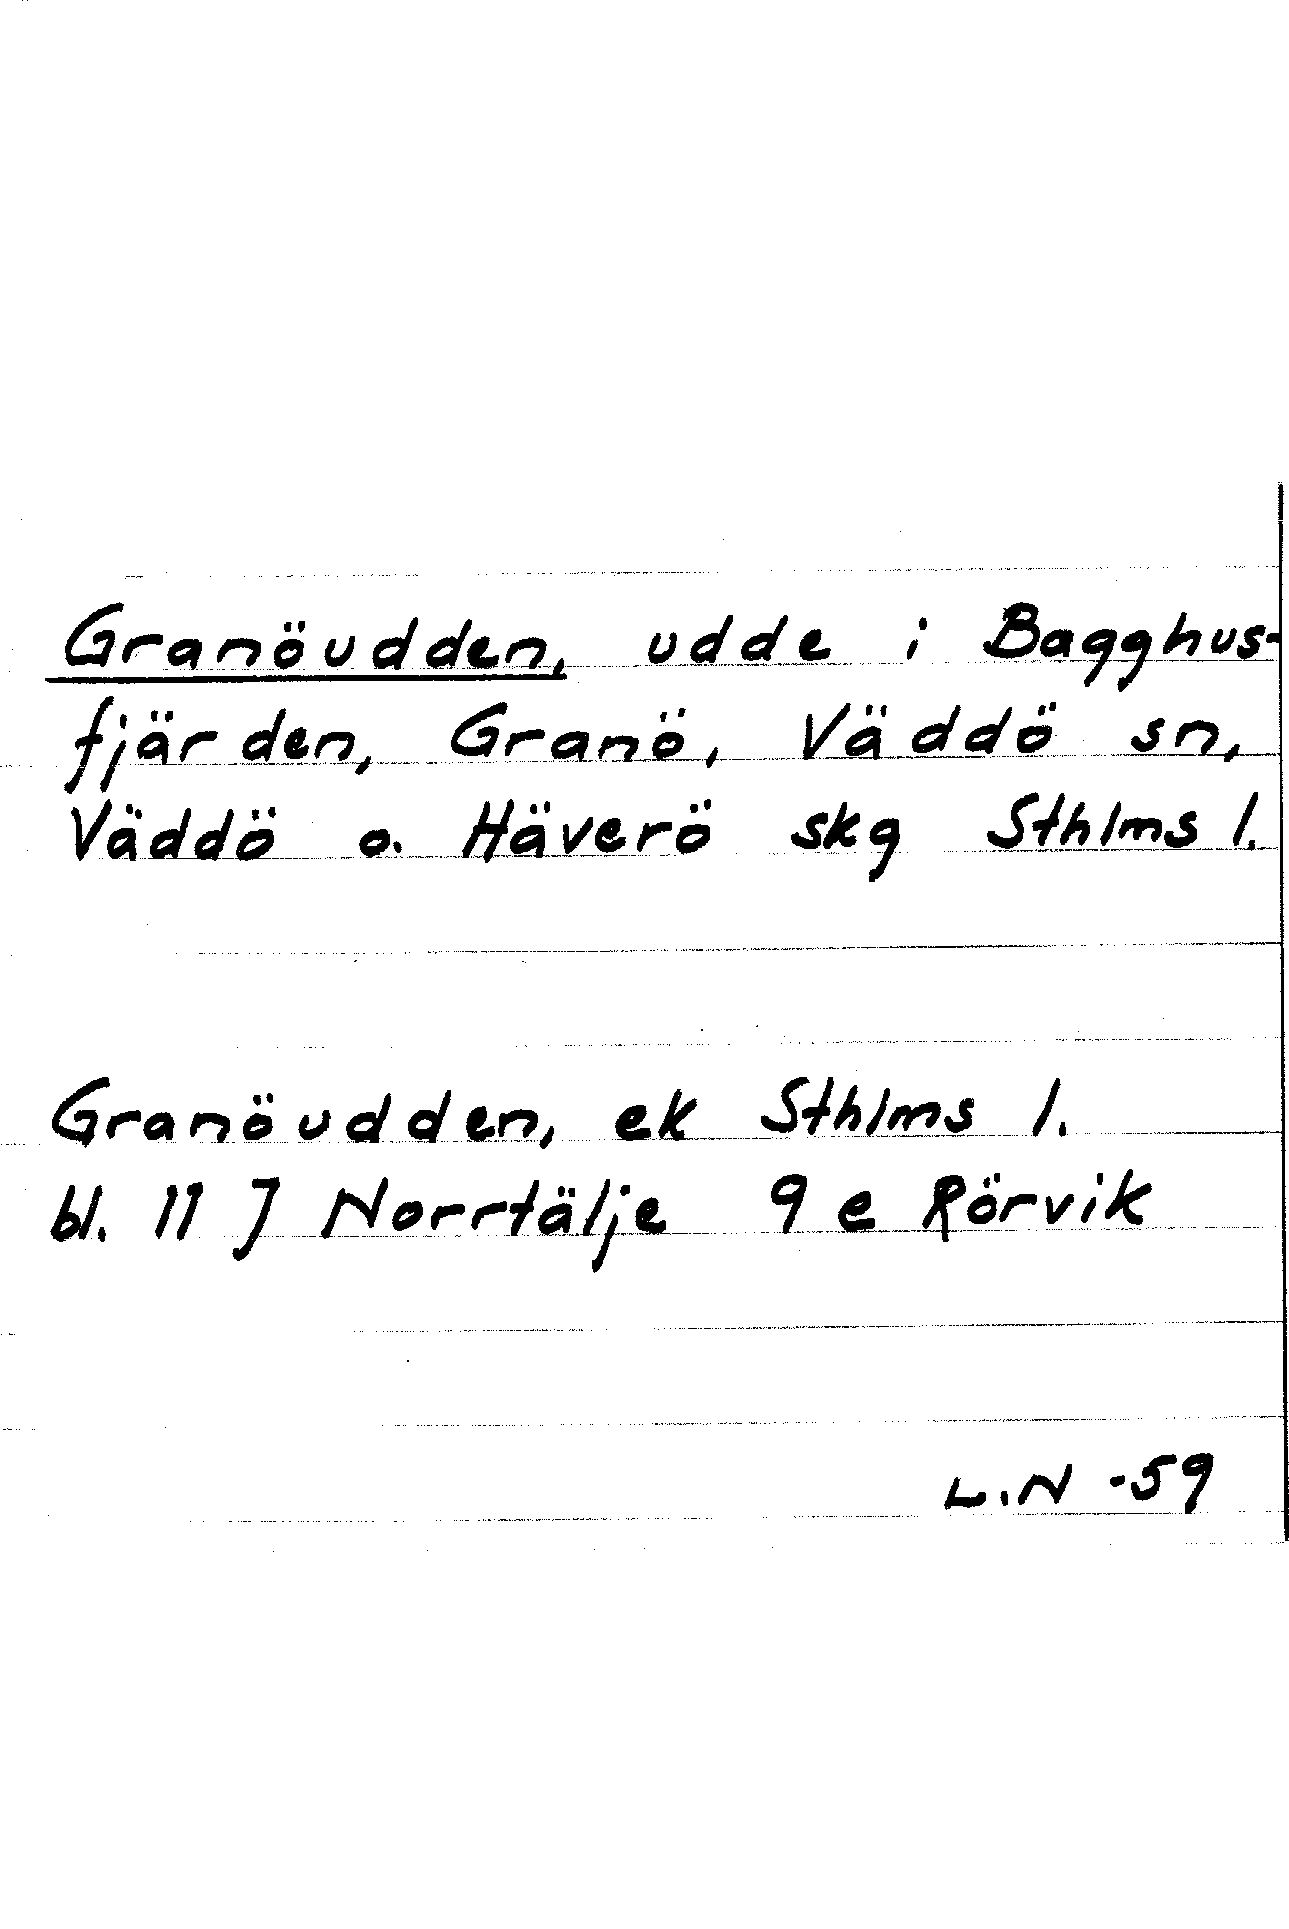 Granöudden, udde i Bagghus-
fjärden, Granö, Väddö sn,
Väddö o. Häverö skg Sthlms l.
Granöudden, ek Sthlms l.
bl. 11 J Norrtälje 9 e Rörvik
L.N -59